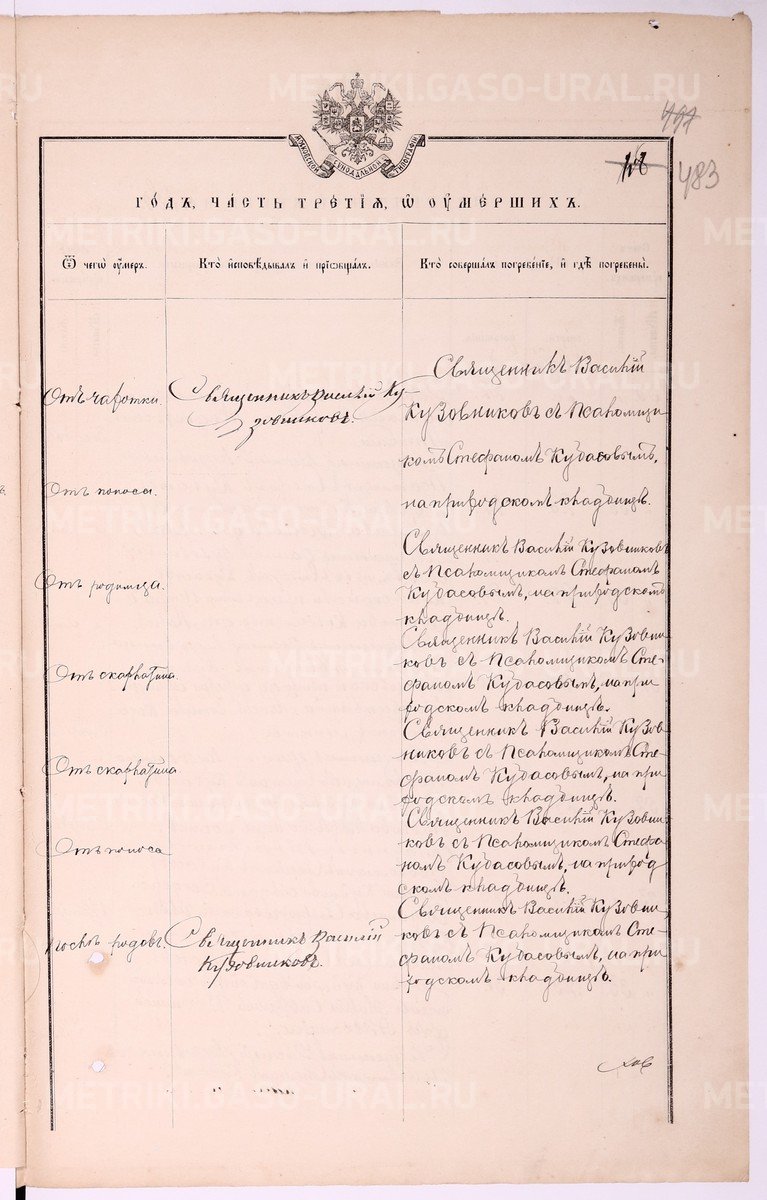 METRIKI.GASO-URAL.RU
497
МОСКОВСКОЙ СѴНОДАЛЬНОЙ ТИПОГРАФІИ
483
ГО́ДЪ, ЧА́СТЬ ТРЕ́ТІѦ, Ѡ҆ ОУ҆МЕ́РШИХЪ.
Ѿ чегѡ̀ оу҆́меръ.
Кто̀ и҆сповѣ́дывалъ и҆ прїѡбща́лъ.
Кто̀ соверша́лъ погребе́нїе, и҆ гдѣ̀ погребены̀.
Отъ чахотки.
Священникъ Василій Ку-
зовниковъ.
Священникъ Василій
Кузовниковъ съ Псаломщи
комъ Стефаномъ Кудасовымъ,
на приходскомъ кладбищѣ.
Отъ поноса.
Священникъ Василій Кузовниковъ
съ Псаломщикомъ Стефаномъ
Кудасовымъ, на приходскомъ
кладбищѣ.
Отъ родимца.
Священникъ Василій Кузовни
ковъ съ Псаломщикомъ Сте-
фаномъ Кудасовымъ, на при
ходскомъ кладбищѣ.
Отъ скарлатина.
Священникъ Василій Кузов
никовъ съ Псаломщикомъ Сте-
фаномъ Кудасовымъ, на при
ходскомъ кладбищѣ.
Отъ скарлатина
Священникъ Василій Кузовни
ковъ съ Псаломщикомъ Стефа
номъ Кудасовымъ, на приход
скомъ кладбищѣ.
Отъ поноса
Священникъ Василій Кузовни
ковъ съ Псаломщикомъ Сте-
фаномъ Кудасовымъ, на при
ходскомъ кладбищѣ.
послѣ родовъ.
Священникъ Василій
Кузовниковъ.